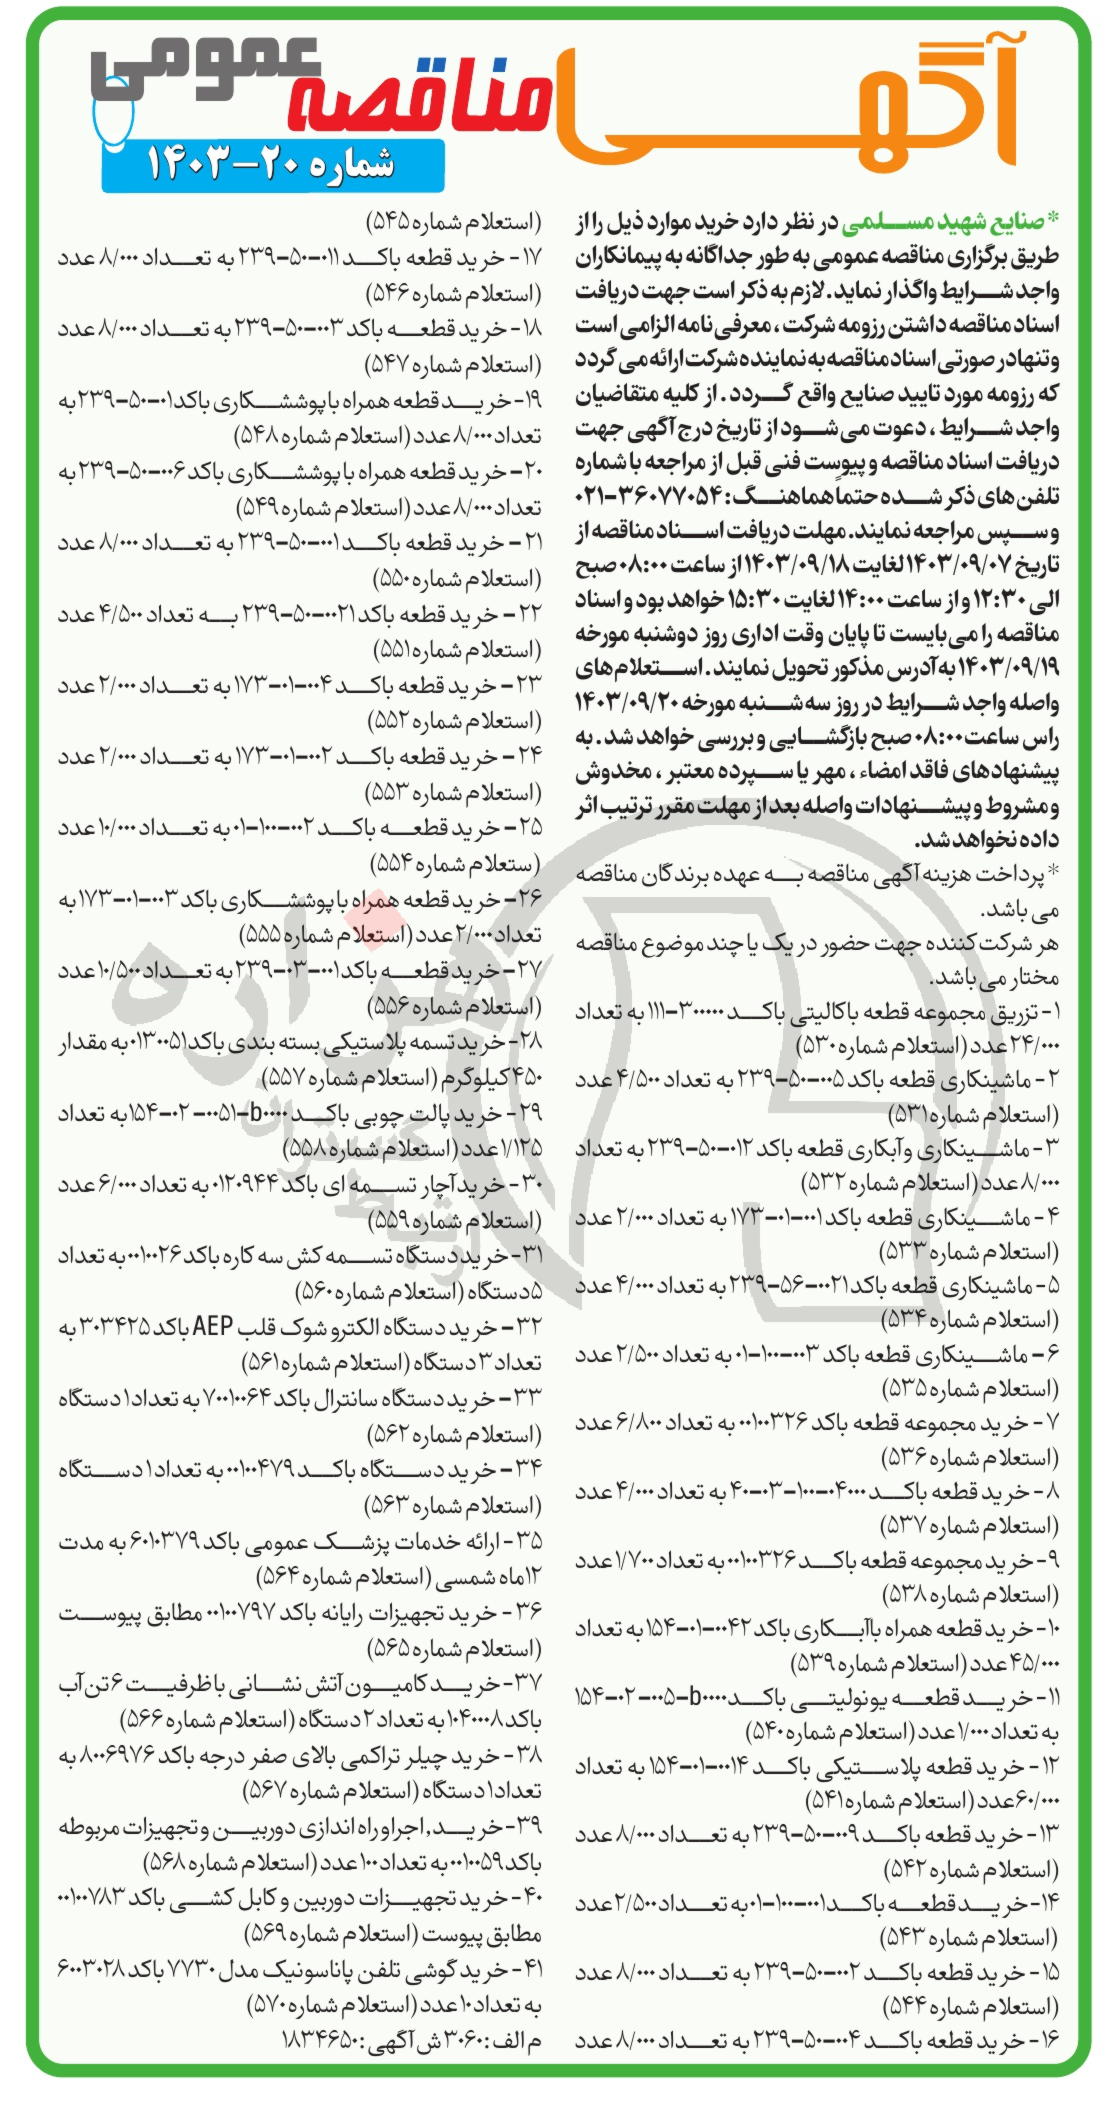 آگهی مناقصه عمومی
شماره ۲۰-۱۴۰۳
* صنایع شهید مسلمی در نظر دارد خرید موارد ذیل را از
طریق برگزاری مناقصه عمومی به طور جداگانه به پیمانکاران
واجد شرایط واگذار نماید. لازم به ذکر است جهت دریافت
اسناد مناقصه داشتن رزومه شرکت ، معرفی نامه الزامی است
وتنها در صورتی اسناد مناقصه به نماینده شرکت ارائه می گردد
که رزومه مورد تایید صنایع واقع گردد . از کلیه متقاضیان
واجد شرایط ، دعوت می شود از تاریخ درج آگهی جهت
دریافت اسناد مناقصه و پیوست فنی قبل از مراجعه با شماره
تلفن های ذکر شده حتماً هماهنگ : ۳۶۰۷۷۰۵۴-۰۲۱
و سپس مراجعه نمایند. مهلت دریافت اسناد مناقصه از
تاریخ ۱۴۰۳/۰۹/۰۷ لغایت ۱۴۰۳/۰۹/۱۸ از ساعت ۰۸:۰۰ صبح
الی ۱۲:۳۰ و از ساعت ۱۴:۰۰ لغایت ۱۵:۳۰ خواهد بود و اسناد
مناقصه را می بایست تا پایان وقت اداری روز دوشنبه مورخه
۱۴۰۳/۰۹/۱۹ به آدرس مذکور تحویل نمایند. استعلام های
واصله واجد شرایط در روز سه شنبه مورخه ۱۴۰۳/۰۹/۲۰
راس ساعت ۰۸:۰۰ صبح بازگشایی و بررسی خواهد شد . به
پیشنهادهای فاقد امضاء ، مهر یا سپرده معتبر ، مخدوش
و مشروط و پیشنهادات واصله بعد از مهلت مقرر ترتیب اثر
داده نخواهد شد.
* پرداخت هزینه آگهی مناقصه به عهده برندگان مناقصه
می باشد.
هر شرکت کننده جهت حضور در یک یا چند موضوع مناقصه
مختار می باشد.
۱- تزریق مجموعه قطعه باکالیتی باکد ۳۰۰۰۰۰-۱۱۱ به تعداد
۲۴/۰۰۰ عدد (استعلام شماره ۵۳۰)
۲- ماشینکاری قطعه باکد ۰۰۵-۵۰-۲۳۹ به تعداد ۴/۵۰۰ عدد
(استعلام شماره ۵۳۱)
۳- ماشینکاری وآبکاری قطعه باکد ۰۱۲-۵۰-۲۳۹ به تعداد
۸/۰۰۰ عدد (استعلام شماره ۵۳۲)
۴- ماشینکاری قطعه باکد ۰۰۱-۰۱-۱۷۳ به تعداد ۲/۰۰۰ عدد
(استعلام شماره ۵۳۳)
۵- ماشینکاری قطعه باکد ۰۰۲۱-۵۶-۲۳۹ به تعداد ۴/۰۰۰ عدد
(استعلام شماره ۵۳۴)
۶- ماشینکاری قطعه باکد ۰۰۳-۱۰۰-۰۱ به تعداد ۲/۵۰۰ عدد
(استعلام شماره ۵۳۵)
۷- خرید مجموعه قطعه باکد ۰۰۱۰۰۳۲۶ به تعداد ۶/۸۰۰ عدد
(استعلام شماره ۵۳۶)
۸- خرید قطعه باکد ۰۴۰۰۰-۱۰۰-۰۳-۴۰ به تعداد ۴/۰۰۰ عدد
(استعلام شماره ۵۳۷)
۹- خرید مجموعه قطعه باکد ۰۰۱۰۰۳۲۶ به تعداد ۱/۷۰۰ عدد
(استعلام شماره ۵۳۸)
۱۰- خرید قطعه همراه باآبکاری باکد ۰۰۴۲-۰۱-۱۵۴ به تعداد
۴۵/۰۰۰ عدد (استعلام شماره ۵۳۹)
۱۱- خرید قطعه یونولیتی باکد b۰۰۰۰-۰۰۵-۰۲-۱۵۴
به تعداد ۱/۰۰۰ عدد (استعلام شماره ۵۴۰)
۱۲- خرید قطعه پلاستیکی باکد ۰۰۱۴-۰۱-۱۵۴ به تعداد
۶۰/۰۰۰ عدد (استعلام شماره ۵۴۱)
۱۳- خرید قطعه باکد ۰۰۹-۵۰-۲۳۹ به تعداد ۸/۰۰۰ عدد
(استعلام شماره ۵۴۲)
۱۴- خرید قطعه باکد ۰۰۱-۱۰۰-۰۱ به تعداد ۲/۵۰۰ عدد
(استعلام شماره ۵۴۳)
۱۵- خرید قطعه باکد ۰۰۲-۵۰-۲۳۹ به تعداد ۸/۰۰۰ عدد
(استعلام شماره ۵۴۴)
۱۶- خرید قطعه باکد ۰۰۴-۵۰-۲۳۹ به تعداد ۸/۰۰۰ عدد
(استعلام شماره ۵۴۵)
۱۷- خرید قطعه باکد ۰۱۱-۵۰-۲۳۹ به تعداد ۸/۰۰۰ عدد
(استعلام شماره ۵۴۶)
۱۸- خرید قطعه باکد ۰۰۳-۵۰-۲۳۹ به تعداد ۸/۰۰۰ عدد
(استعلام شماره ۵۴۷)
۱۹- خرید قطعه همراه با پوششکاری باکد ۰۱-۵۰-۲۳۹ به
تعداد ۸/۰۰۰ عدد (استعلام شماره ۵۴۸)
۲۰- خرید قطعه همراه با پوششکاری باکد ۰۰۶-۵۰-۲۳۹ به
تعداد ۸/۰۰۰ عدد (استعلام شماره ۵۴۹)
۲۱- خرید قطعه باکد ۰۰۱-۵۰-۲۳۹ به تعداد ۸/۰۰۰ عدد
(استعلام شماره ۵۵۰)
۲۲- خرید قطعه باکد ۰۰۲۱-۵۰-۲۳۹ به تعداد ۴/۵۰۰ عدد
(استعلام شماره ۵۵۱)
۲۳- خرید قطعه باکد ۰۰۴-۰۱-۱۷۳ به تعداد ۲/۰۰۰ عدد
(استعلام شماره ۵۵۲)
۲۴- خرید قطعه باکد ۰۰۲-۰۱-۱۷۳ به تعداد ۲/۰۰۰ عدد
(استعلام شماره ۵۵۳)
۲۵- خرید قطعه باکد ۰۰۲-۱۰۰-۰۱ به تعداد ۱۰/۰۰۰ عدد
(ستعلام شماره ۵۵۴)
۲۶- خرید قطعه همراه با پوششکاری باکد ۰۰۳-۰۱-۱۷۳ به
تعداد ۲/۰۰۰ عدد (استعلام شماره ۵۵۵)
۲۷- خرید قطعه باکد ۰۰۱-۰۳-۲۳۹ به تعداد ۱۰/۵۰۰ عدد
(استعلام شماره ۵۵۶)
۲۸- خرید تسمه پلاستیکی بسته بندی باکد ۰۱۳۰۰۵۱ به مقدار
۴۵۰ کیلوگرم (استعلام شماره ۵۵۷)
۲۹- خرید پالت چوبی باکد b۰۰۰۰-۰۰۵۱-۰۲-۱۵۴ به تعداد
۱/۱۲۵ عدد (استعلام شماره ۵۵۸)
۳۰- خرید آچار تسمه ای باکد ۰۱۲۰۹۴۴ به تعداد ۶/۰۰۰ عدد
(استعلام شماره ۵۵۹)
۳۱- خرید دستگاه تسمه کش سه کاره باکد ۰۰۱۰۰۲۶ به تعداد
۵ دستگاه (استعلام شماره ۵۶۰)
۳۲- خرید دستگاه الکترو شوک قلب AEP باکد ۳۰۳۴۲۵ به
تعداد ۳ دستگاه (استعلام شماره ۵۶۱)
۳۳- خرید دستگاه سانترال باکد ۷۰۰۱۰۰۶۴ به تعداد ۱ دستگاه
(استعلام شماره ۵۶۲)
۳۴- خرید دستگاه باکد ۰۰۱۰۰۴۷۹ به تعداد ۱ دستگاه
(استعلام شماره ۵۶۳)
۳۵- ارائه خدمات پزشک عمومی باکد ۶۰۱۰۳۷۹ به مدت
۱۲ ماه شمسی (استعلام شماره ۵۶۴)
۳۶- خرید تجهیزات رایانه باکد ۰۰۱۰۰۷۹۷ مطابق پیوست
(استعلام شماره ۵۶۵)
۳۷- خرید کامیون آتش نشانی با ظرفیت ۶ تن آب
باکد ۱۰۴۰۰۰۸ به تعداد ۲ دستگاه (استعلام شماره ۵۶۶)
۳۸- خرید چیلر تراکمی بالای صفر درجه باکد ۸۰۰۶۹۷۶ به
تعداد ۱ دستگاه (استعلام شماره ۵۶۷)
۳۹- خرید, اجرا و راه اندازی دوربین و تجهیزات مربوطه
باکد ۰۰۱۰۰۵۹ به تعداد ۱۰۰ عدد (استعلام شماره ۵۶۸)
۴۰- خرید تجهیزات دوربین و کابل کشی باکد ۰۰۱۰۰۷۸۳
مطابق پیوست (استعلام شماره ۵۶۹)
۴۱- خرید گوشی تلفن پاناسونیک مدل ۷۷۳۰ باکد ۶۰۰۳۰۲۸
به تعداد ۱۰ عدد (استعلام شماره ۵۷۰)
م الف : ۳۰۶۰ ش آگهی : ۱۸۳۴۶۵۰
هزاره